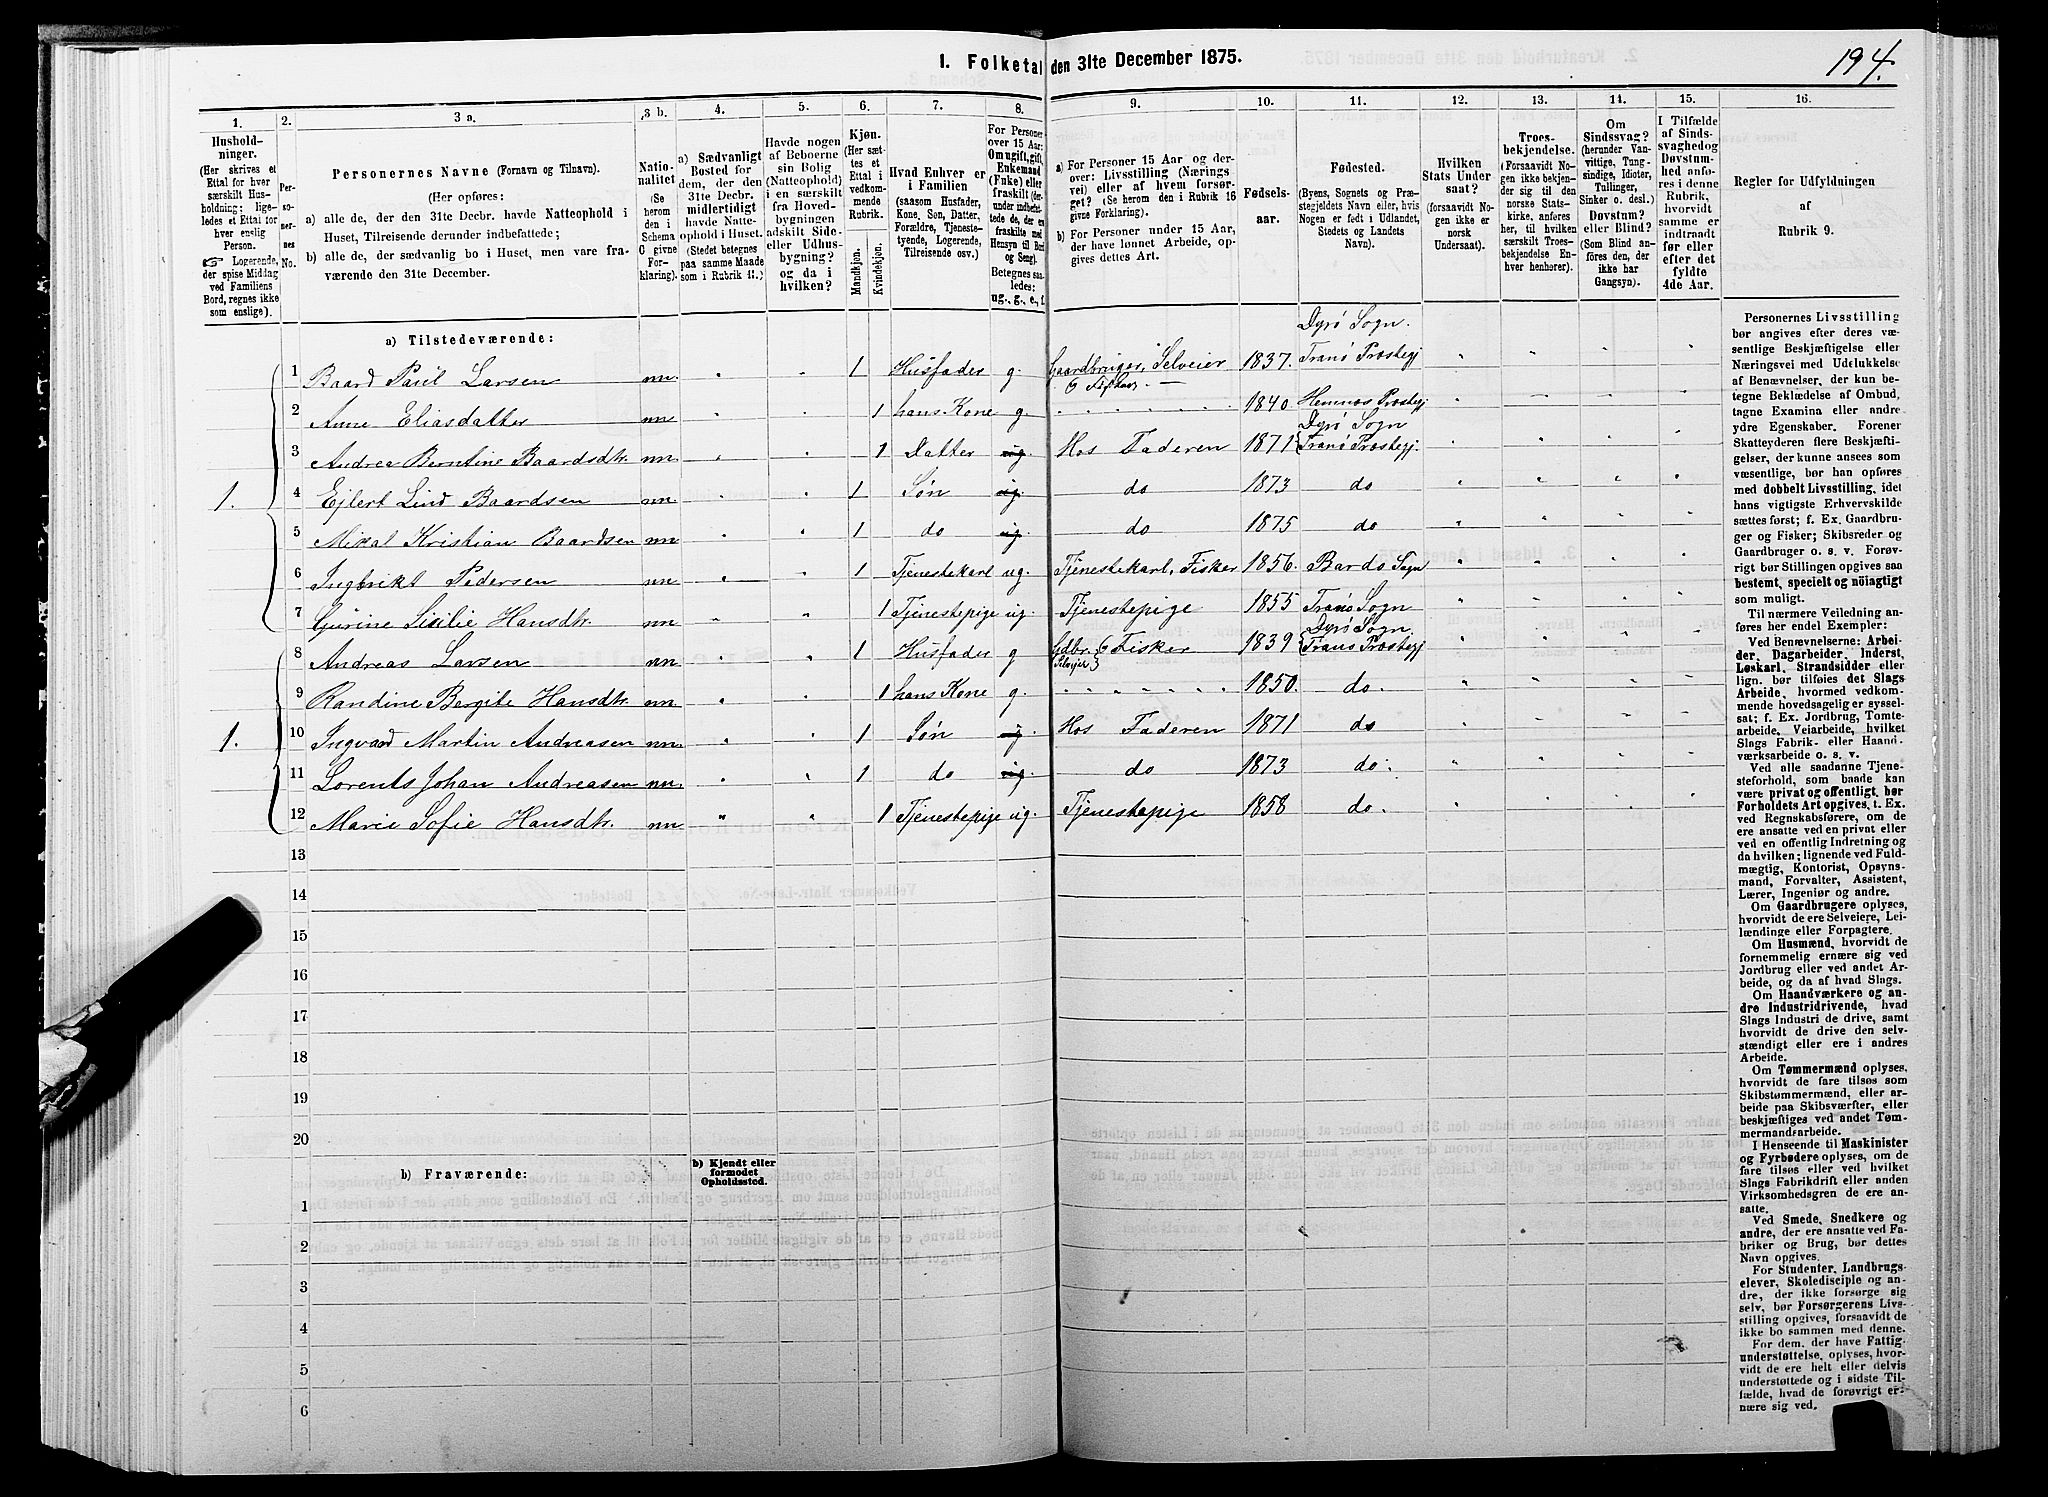 194.
1. Folketal den 31te December 1875.
1. 2. 3 a. 3 b. 4. 5. 6. 7. 8. 9. 10. 11. 12. 13. 14. 15. 16.
Hushold-
ninger.
(Her skrives et
Ettal for hver
særskilt Hus-
holdning; lige-
ledes et Ettal for
hver enslig
Person.
☞ Logerende,
der spise Middag
ved Familiens
Bord, regnes ikke
som enslige).
Per-
so-
ner-
nes
No.
Personernes Navne (Fornavn og Tilnavn).
(Her opføres:
a) alle de, der den 31te Decbr. havde Natteophold i
Huset, Tilreisende derunder indbefattede;
b) alle de, der sædvanlig bo i Huset, men vare fra-
værende den 31te December.
Natio-
nalitet
(Se
herom
den i
Schema
C givne
For-
klaring).
a) Sædvanligt
Bosted for
dem, der den
31te Decbr.
midlertidigt
havde Natte-
ophold i Huset.
(Stedet betegnes
paa samme Maade
som i Rubrik 11.)
Havde nogen
af Beboerne
sin Bolig
(Natteophold)
i en særskilt
fra Hoved-
bygningen
adskilt Side-
eller Udhus-
bygning?
og da i
hvilken?
Kjøn.
(Her sæt-
tes et
Ettal i
vedkom-
mende
Rubrik.
Mandkjøn.
Kvindekjøn.
Hvad Enhver er
i Familien
(saasom Husfader,
Kone, Søn, Datter,
Forældre, Tjeneste-
tyende, Logerende,
Tilreisende osv.)
For Personer
over 15 Aar:
Om ugift, gift,
Enkemand
(Enke) eller
fraskilt (der-
under indbefat-
tede de, der ere
fraskilte med
Hensyn til Bord
og Seng).
Betegnes saa-
ledes:
ug., g., e., f.
a) For Personer 15 Aar og der-
over: Livsstilling (Nærings-
vei) eller af hvem forsør-
get? (Se herom den i Rubrik 16
givne Forklaring).
b) For Personer under 15 Aar,
der have lønnet Arbeide, op-
gives dettes Art.
Fødsels-
aar.
Fødested.
(Byens, Sognets og Præ-
stegjeldets Navn eller, hvis
Nogen er født i Udlandet,
Stedets og Landets
Navn).
Hvilken
Stats Under
saat?
(forsaavidt No-
gen ikke er
norsk
Undersaat).
Troes-
bekjendelse.
(Forsaavidt No-
gen ikke bekjen-
der sig til den
norske Stats-
kirke, anføres
her, til hvilken
særskilt Troes-
bekjendelse En-
hver henhører).
Om
Sindssvag?
(herunder Van-
vittige, Tung-
sindige, Idioter,
Tullinger,
Sinker o. desl.)
Døvstum?
eller Blind?
(Som Blind an-
føres den, der
ikke har
Gangsyn).
I Tilfælde
af Sinds-
svaghed og
Døvstum-
hed anfø-
res i denne
Rubrik,
hvorvidt
samme er
indtraadt
før eller
efter det
fyldte
4de Aar.
Regler for Udfyldningen
af
Rubrik 9.
a) Tilstedeværende:
1 Baard Paul Larsen nn. 1 Husfader g. Gaardbruger, Selveier & Fisker 1837. Dyrø Sogn. Tranø Præstegj
2 Anne Eliasdatter nn 1 hans Kone g. 1840. Hemnæs Præstegj
3 Andrea Berntine Baardsdtr. nn. 1 Datter ug. Hos Faderen 1871 Dyrø Sogn Tranø Præstegj.
1. 4 Ejlert Lind Baardsen nn 1 Søn ug. do 1873 do
5 Mikal Kristian Baardsen nn 1 do ug. do 1875 do
6 Ingbrikt Pedersen nn 1 Tjenestekarl ug. Tjenestekarl, Fisker 1856. Bardo Sogn
7 Gurine Sisilie Hansdtr. nn. 1 Tjenestepige ug. Tjenestepige 1855 Tranø Sogn
8 Andreas Larsen nn 1 Husfader g Gdbr. & Fisker Selvejer 1839 Dyrø Sogn Tranø Præstegj
9 Randine Bergite Hansdtr. nn. 1 hans Kone g. 1850. do.
1. 10 Ingvard Martin Andreasen nn. 1 Søn ug. Hos Faderen 1871 do
11 Lorents Johan Andreasen nn. 1 do ug. do 1873 do.
12 Marie Sofie Hansdtr. nn 1 Tjenestepige ug. Tjenestepige 1858 do.
13
14
15
16
17
18
19
20
b) Fraværende:
b) Kjendt eller
formodet
Opholdssted.
1
2
3
4
5
6
Personernes Livsstilling
bør angives efter deres væ-
sentlige Beskjæftigelse eller
Næringsvei med Udelukkelse
af Benævnelser, der kun be-
tegne Beklædelse af Ombud,
tagne Examina eller andre
ydre Egenskaber. Forener
Skatteyderen flere Beskjæfti-
gelser, der kunne ansees som
væsentlige, bør han opføres
med dobbelt Livsstilling, idet
hans vigtigste Erhvervskilde
sættes først; f. Ex. Gaardbru-
ger og Fisker; Skibsreder og
Gaardbruger o. s. v. Forøv-
rigt bør Stillingen opgives saa
bestemt, specielt og nöiagtigt
som muligt.
Til nærmere Veiledning an-
føres her endel Exempler:
Ved Benævnelserne: Arbei-
der, Dagarbeider, Inderst,
Løskarl, Strandsidder eller
lign. bør tilføies det Slags
Arbeide, hvormed vedkom-
mende hovedsagelig er syssel-
sat; f. Ex. Jordbrug, Tomte-
arbeide, Veiarbeide, hvilket
Slags Fabrik- eller Haand-
værksarbeide o. s. v.
Ved alle saadanne Tjene-
steforhold, som baade kan
være privat og offentligt, bør
Forholdets Art opgives, t. Ex.
ved Regnskabsførere, om de
ere ansatte ved en privat eller
ved en offentlig Indretning og
da hvilken; lignende ved Fuld-
mægtig, Kontorist, Opsyns-
mand, Forvalter, Assistent,
Lærer, Ingeniør og andre.
Om Gaardbrugere oplyses,
hvorvidt de ere Selveiere, Lei-
lændinge eller Forpagtere.
Om Husmænd, hvorvidt de
fornemmelig ernære sig ved
Jordbrug eller ved andet Ar-
beide, og da af hvad Slags.
Om Haandværkere og an-
dre Industridrivende, hvad
Slags Industri de drive, samt
hvorvidt de drive den selv-
stændigt eller ere i andres
Arbeide.
Om Tømmermænd oplyses,
hvorvidt de fare tilsøs som
Skibstømmermænd, eller ar-
beide paa Skibsværfter, eller
beskjæftiges ved andet Tøm-
mermandsarbeide.
I Henseende til Maskinister
og Fyrbødere oplyses, om de
fare tilsøs eller ved hvilket
Slags Fabrikdrift eller anden
Virksomhedsgren de ere an-
satte.
Ved Smede, Snedkere og
andre, der ere ansatte ved Fa-
briker og Brug, bør dettes
Navn opgives.
For Studenter, Landbrugs-
elever, Skoledisciple og an-
dre, der ikke forsørge sig
selv, bør Forsørgerens Livs-
stilling opgives, forsaavidt de
ikke bo sammen med denne.
For dem, der have Fattig-
understøttelse, oplyses, hvor-
vidt de ere helt eller delvis
understøttede og i sidste Til-
fælde, hvad de forøvrigt er-
nære sig ved.